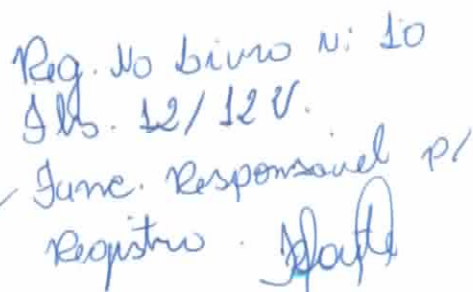 Reg. No Livro N: 10
Fls. 12/12 V.
Func. Responsavel p/
Registro.